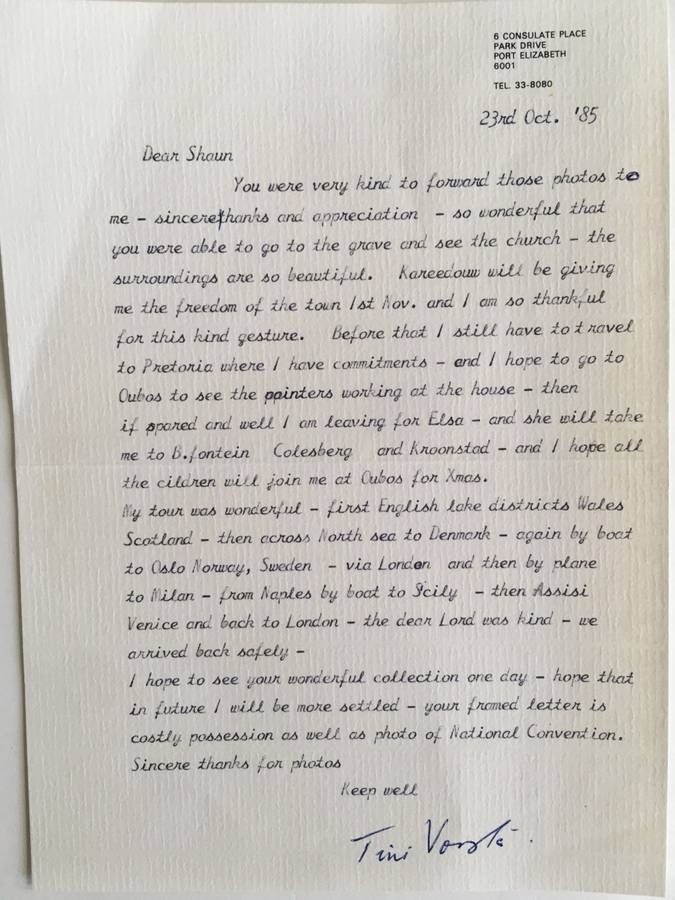 6 CONSULATE PLACE
PARK DRIVE
PORT ELIZABETH
6001
TEL. 33-8080
23rd Oct. '85
Dear Shaun
You were very kind to forward those photos to
me - sincere/thanks and appreciation - so wonderful that
you were able to go to the grave and see the church - the
surroundings are so beautiful. Kareedouw will be giving
me the freedom of the town 1st Nov. and I am so thankful
for this kind gesture. Before that I still have to t ravel
to Pretoria where I have commitments - and I hope to go to
Oubos to see the painters working at the house - then
if spared and well I am leaving for Elsa - and she will take
me to B.fontein Colesberg and Kroonstad - and I hope all
the cildren will join me at Oubos for Xmas.
My tour was wonderful - first English lake districts Wales
Scotland - then across North sea to Denmark - again by boat
to Oslo Norway, Sweden - via London and then by plane
to Milan - from Naples by boat to Scily - then Assisi
Venice and back to London - the dear Lord was kind - we
arrived back safely -
I hope to see your wonderful collection one day - hope that
in future I will be more settled - your framed letter is
costly possession as well as photo of National Convention.
Sincere thanks for photos
Keep well
Tini Vorster.